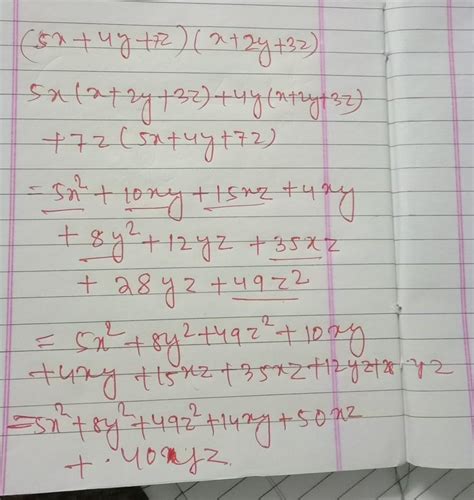 (5x+4y+7z)(x+2y+3z)
5x(x+2y+3z)+4y(x+2y+3z)
+7z(5x+4y+7z)
=5x²+10xy+15xz+4xy
+8y²+12yz+35xz
+28yz+49z2
=5x²+8y²+49z²+10xy
+4xy+15xz+35xz+12yz+ yz
=5x²+8y²+49z²+14xy+50xz
+·40xyz